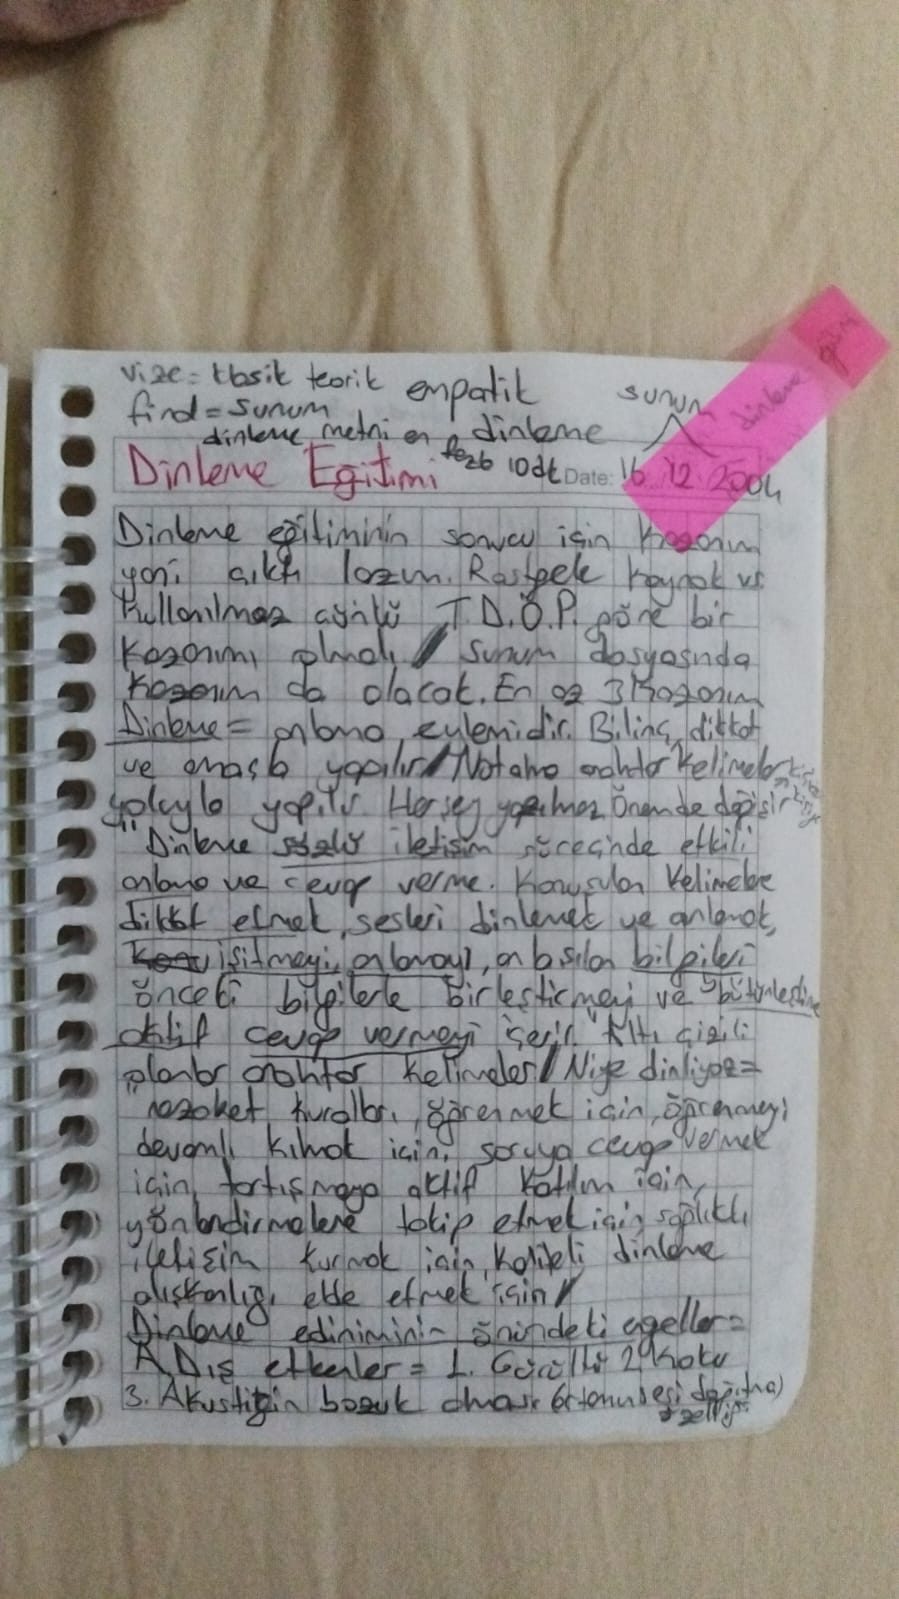 vize = klasik teorik empatik sunum
final = sunum
dinleme metni en fazla 10 dk dinleme
Dinleme Eğitimi
Date: 16.12.2004
dinleme
Dinleme eğitiminin sonucu için kazanım
yani çıktı lazım. Rastgele kaynak vs
kullanılmaz çünkü T.D.Ö.P. göre bir
kazanımı olmalı / sunum dosyasında
kazanım da olacak. En az 3 kazanım
Dinleme = anlama eylemidir. Bilinç, dikkat
ve amaçla yapılır / Not alma anahtar kelimeler
yoluyla yapılır Herşey yazılmaz önemde değişir
"Dinleme sözlü iletişim sürecinde etkili
anlama ve cevap verme. Konuşulan kelimelere
dikkat etmek, sesleri dinlemek ve anlamak,
işitmeyi, anlamayı, anlaşılan bilgileri
önceki bilgilerle birleştirmeyi ve
aktif cevap vermeyi içerir." Altı çizili
olanlar anahtar kelimeler / Niye dinliyoz =
nezaket kuralları, öğrenmek için, öğrenmeyi
devamlı kılmak için, soruya cevap vermek
için, tartışmaya aktif katılım için,
yönlendirmelere takip etmek için, sağlıklı
iletişim kurmak için, kaliteli dinleme
alışkanlığı elde etmek için /
Dinleme ediniminin önündeki engeller =
A. Dış etkenler = 1. Gürültü 2. Koku
3. Akustiğin bozuk olması ortamın sesi dağıtma
özelliği